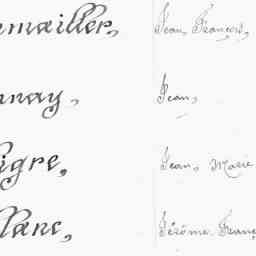 maeiller, Jean, François,
nay, Jean,
igre, Jean, Marie
llanc, Jérôme Franç